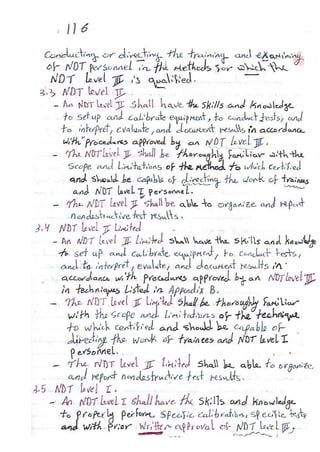 116
Conducting or directing the training and examining
of NDT personnel in the Methods for which the
NDT Level III is qualified.
3.3 NDT Level II
- An NDT Level II shall have the skills and knowledge
to set up and calibrate equipment, to conduct tests, and
to interpret, evaluate, and document results in accordance
with procedures approved by an NDT Level III.
- The NDT Level II shall be thoroughly familiar with the
scope and limitations of the method to which certified
and should be capable of directing the work of trainees
and NDT Level I personnel.
- The NDT Level II shall be able to organize and report
nondestructive test results.
3.4 NDT Level II Limited
- An NDT Level II Limited shall have the skills and knowledge
to set up and calibrate equipment, to conduct tests,
and to interpret, evaluate, and document results in
accordance with procedures approved by an NDT Level III
in techniques listed in Appendix B.
- The NDT Level II limited shall be thoroughly familiar
with the scope and limitations of the technique
to which certified and should be capable of
directing the work of trainees and NDT Level I
personnel.
- The NDT Level II limited shall be able to organize
and report nondestructive test results.
3.5 NDT Level I.
- An NDT Level I shall have the skills and knowledge
to properly perform specific calibration, specific tests
and with prior written approval of NDT Level III,